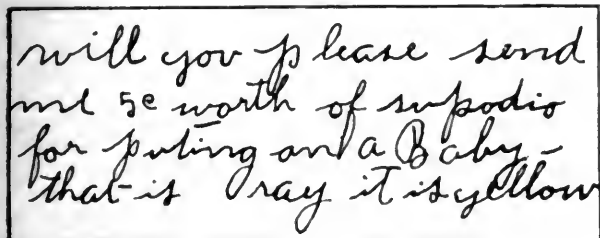 will you please send
me 5c worth of supodio
for puting on a Baby -
that is ray it is yellow